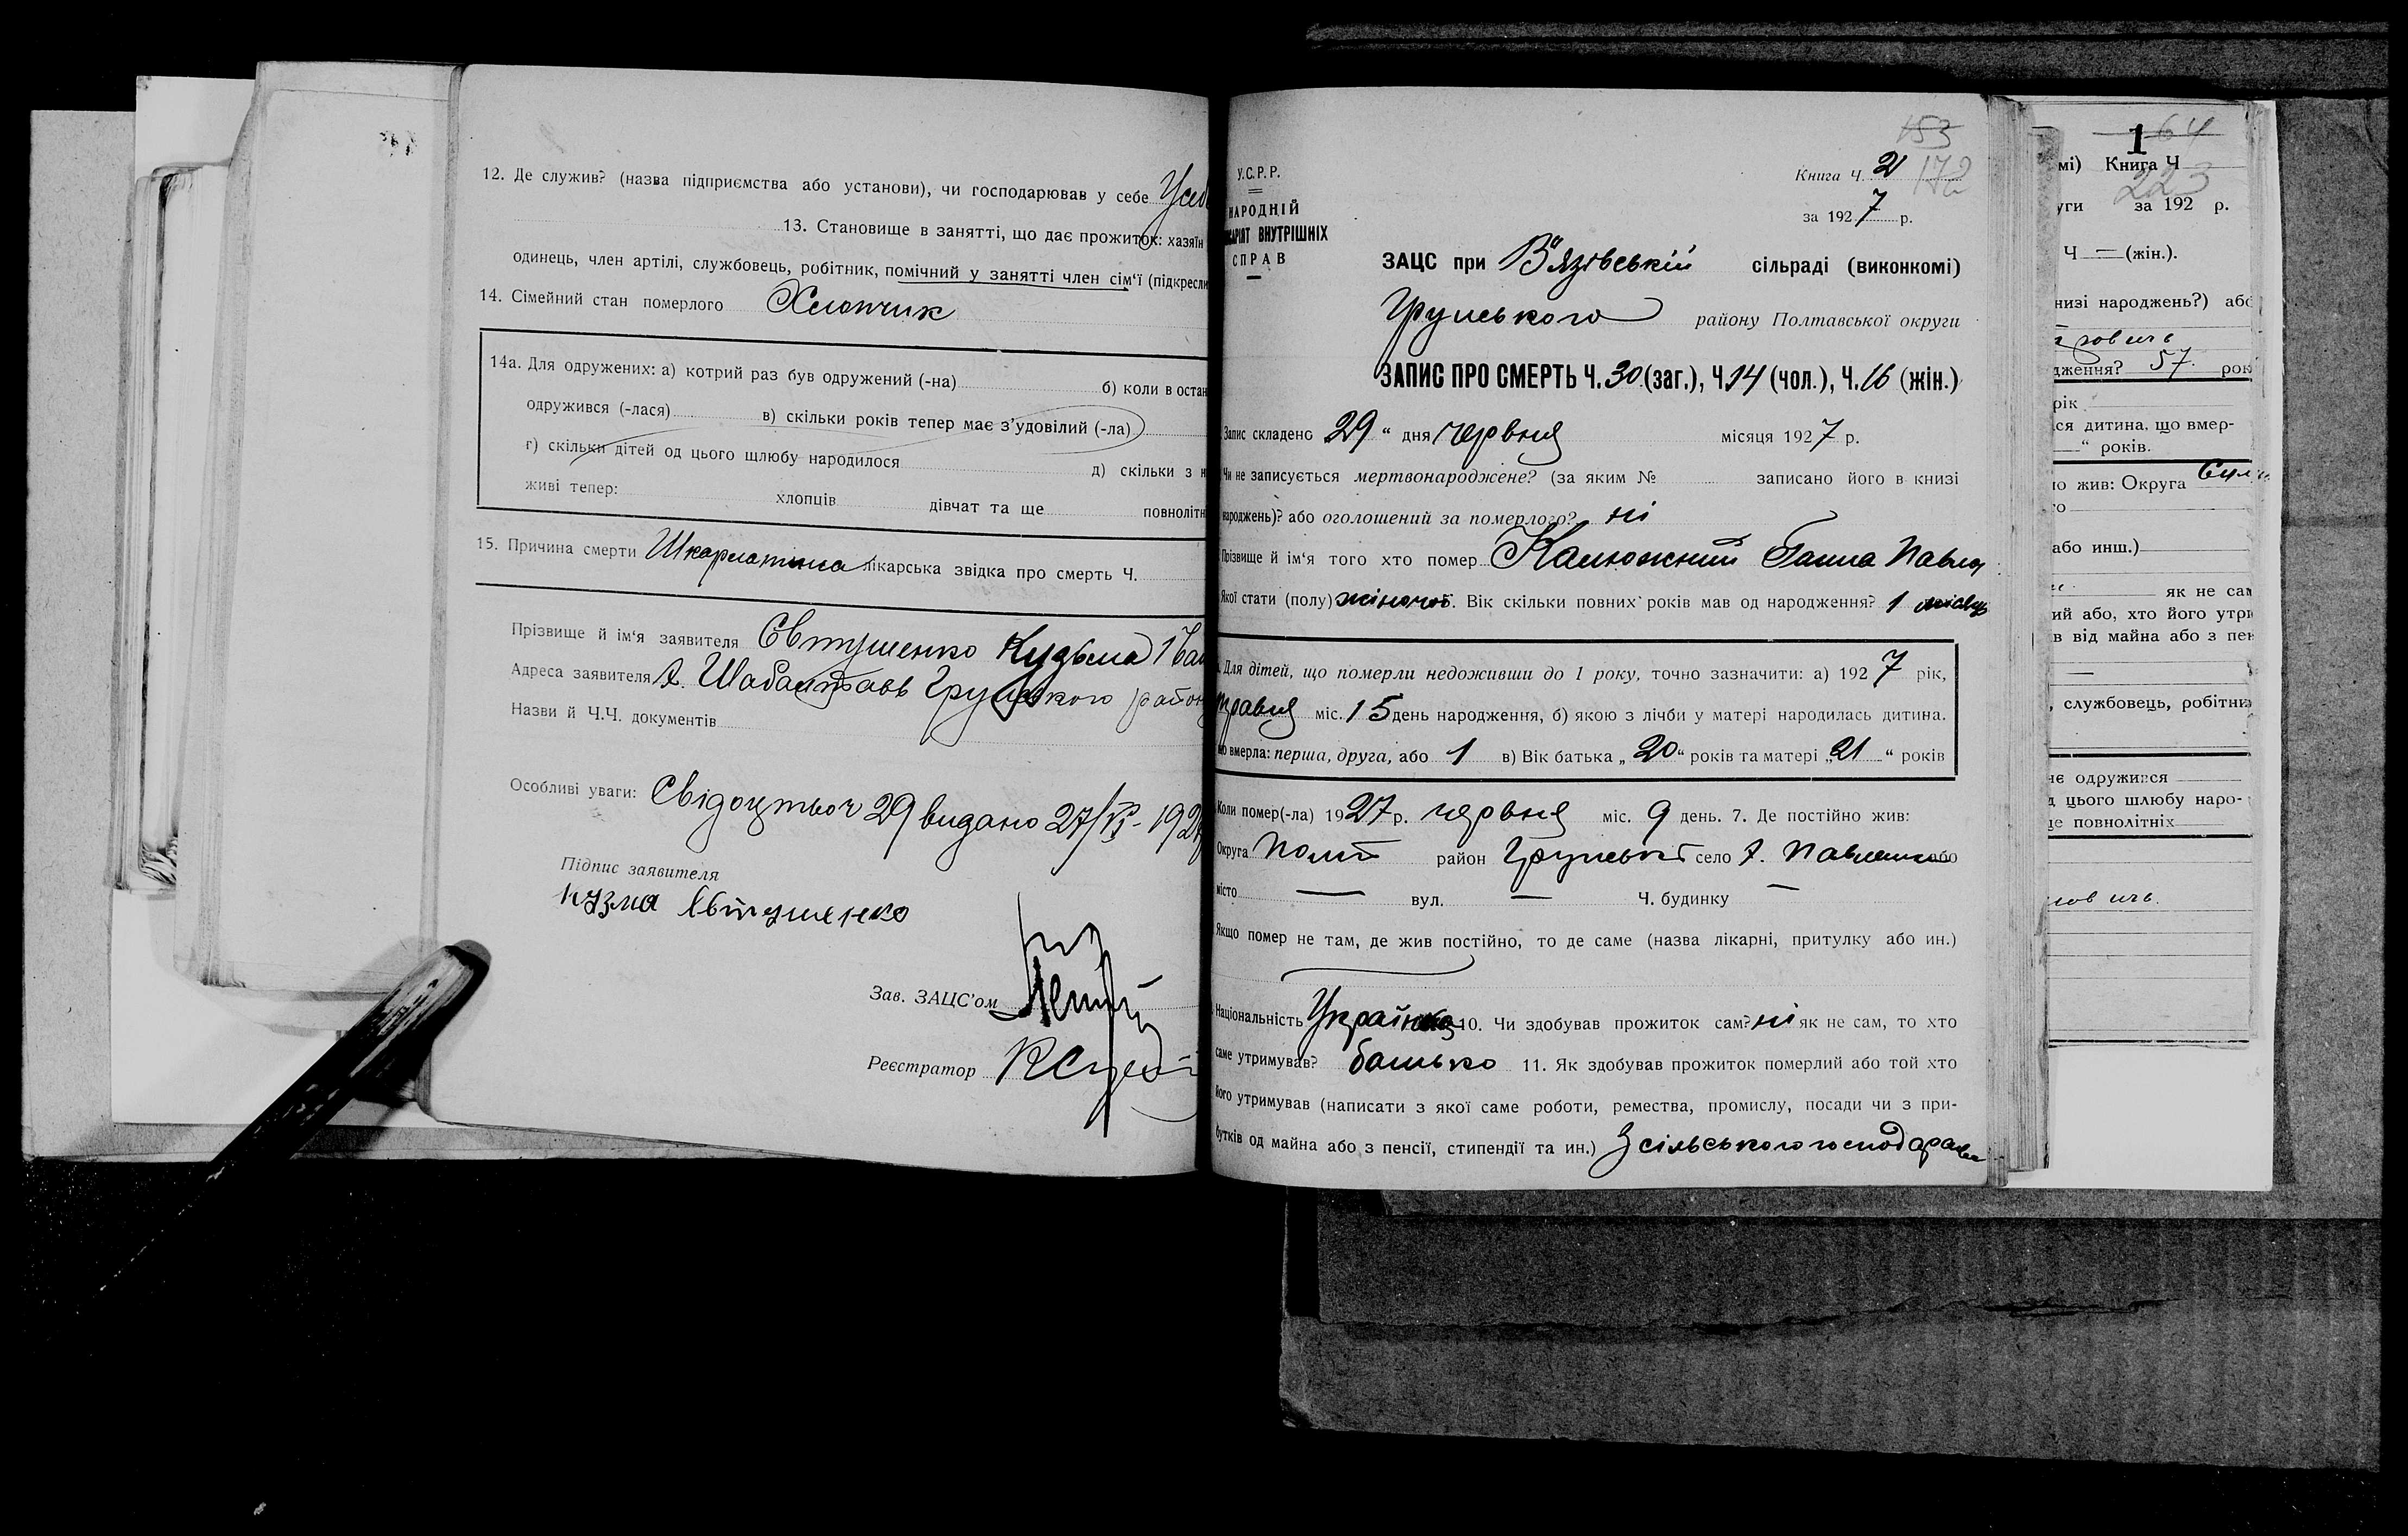 12. Де служив? (назва підприємства або установи), чи господарював у себе
13. Становище в занятті, що дає прожиток: хазяїн
одинець, член артілі, службовець, робітник, помічний у занятті член сім'ї (підкресли
14. Сімейний стан померлого Хлопчик
14а. Для одружених: а) котрий раз був одружений (-на) б) коли в остан
одружився (-лася) в) скільки років тепер має з'удовілий (-ла)
г) скільки дітей од цього шлюбу народилося д) скільки з н
живі тепер: хлопців дівчат та ще повноліт
15. Причина смерти Шкарлатина лікарська звідка про смерть Ч.
Прізвище й ім'я заявителя Євтушенко Кузьма Іван
Адреса заявителя х. Грунського район
Назви й Ч.Ч. документів
Особливі уваги: 29 видано 27/VI - 192
Підпис заявителя
кузма Євтушенко
Зав. ЗАЦС'ом
Реєстратор
153
172
У.С.Р.Р.
НАРОДНІЙ
САРІЯТ ВНУТРІШНІХ
СПРАВ
Книга Ч. 2
за 1927 р.
ЗАЦС при В'язівській сільраді (виконкомі)
Грунського району Полтавської округи
ЗАПИС ПРО СМЕРТЬ Ч. 30 (заг.), Ч. 14 (чол.), Ч. 16 (жін.)
Запис складено 29 " дня червня місяця 1927 р.
Чи не записується мертвонароджене? (за яким № записано його в книзі
народжень)? або оголошений за померлого? ні
Прізвище й ім'я того хто помер Калюжний Ганна Павл
Якої стати (полу) жіночої. Вік скільки повних років мав од народження? 1 місяць
Для дітей, що померли недоживши до 1 року, точно зазначити: а) 1927 рік,
травня міс. 15 день народження, б) якою з лічби у матері народилась дитина.
що вмерла: перша, друга, або 1 в) Вік батька „ 20 " років та матері „ 21 " років
Коли помер(-ла) 1927 р. червня міс. 9 день. 7. Де постійно жив:
Округа Полт район Грунський село х. або
місто — вул. — Ч. будинку —
Якщо помер не там, де жив постійно, то де саме (назва лікарні, притулку або ин.)
Національність Українка 10. Чи здобував прожиток сам? ні як не сам, то хто
саме утримував? батько 11. Як здобував прожиток померлий або той хто
його утримував (написати з якої саме роботи, ремества, промислу, посади чи з при-
бутків од майна або з пенсії, стипендії та ин.) З сільського господарства
1 64
мі) Книга Ч
223
уги за 192 р.
Ч — (жін.).
низі народжень?) або
дження? 57. рок
рік
ся дитина, що вмер-
" років.
о жив: Округа
або инш.)
як не сам
ий або, хто його утри
в від майна або з пен
—
, службовець, робітни
нє одружився
д цього шлюбу наро-
ще повнолітніх